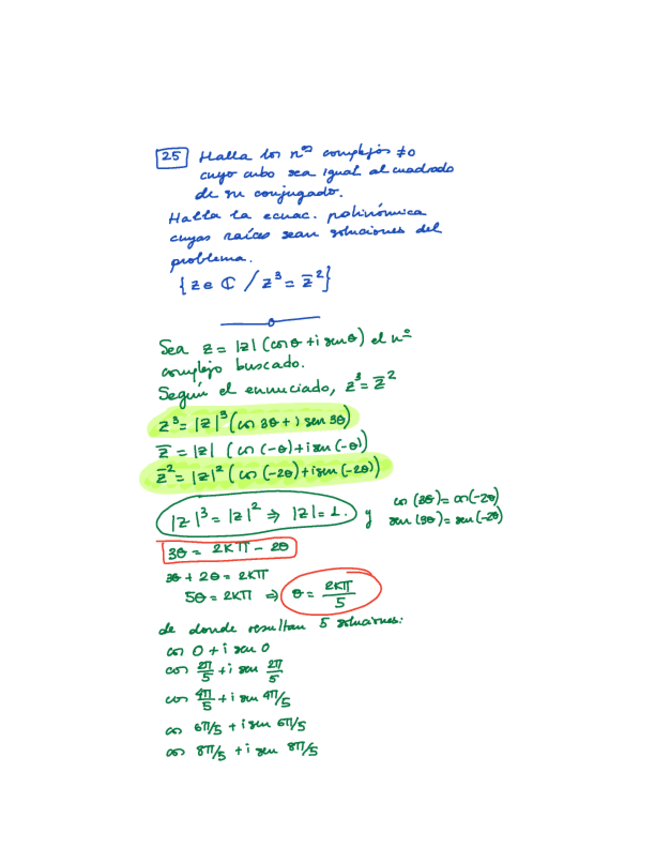 25 Halla los nos complejos ≠0
cuyo cubo sea igual al cuadrado
de su conjugado.
Halla la ecuac. polinómica
cuyas raíces sean soluciones del
problema.
{z ∈ ℂ / z³ = z̄²}
Sea z = |z| (cosθ + i senθ) el nº
complejo buscado.
Según el enunciado, z³ = z̄²
z³ = |z|³ (cos 3θ + i sen 3θ)
z̄ = |z| (cos (-θ) + i sen (-θ))
z̄² = |z|² (cos (-2θ) + i sen (-2θ))
|z|³ = |z|² ⇒ |z| = 1. y cos (3θ) = cos (-2θ)
sen (3θ) = sen (-2θ)
3θ = 2Kπ - 2θ
3θ + 2θ = 2Kπ
5θ = 2Kπ ⇒ θ = 2Kπ/5
de donde resultan 5 soluciones:
cos 0 + i sen 0
cos 2π/5 + i sen 2π/5
cos 4π/5 + i sen 4π/5
cos 6π/5 + i sen 6π/5
cos 8π/5 + i sen 8π/5